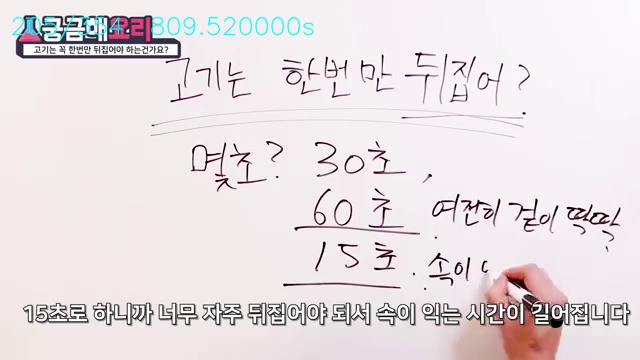 809.520000s
궁금해요리
고기는 꼭 한번만 뒤집어야 하는건가요?
고기는 한번만 뒤집어?
몇초? 30초,
60초 여전히 겉이 딱딱
15초. 속이
15초로 하니까 너무 자주 뒤집어야 되서 속이 익는 시간이 길어집니다